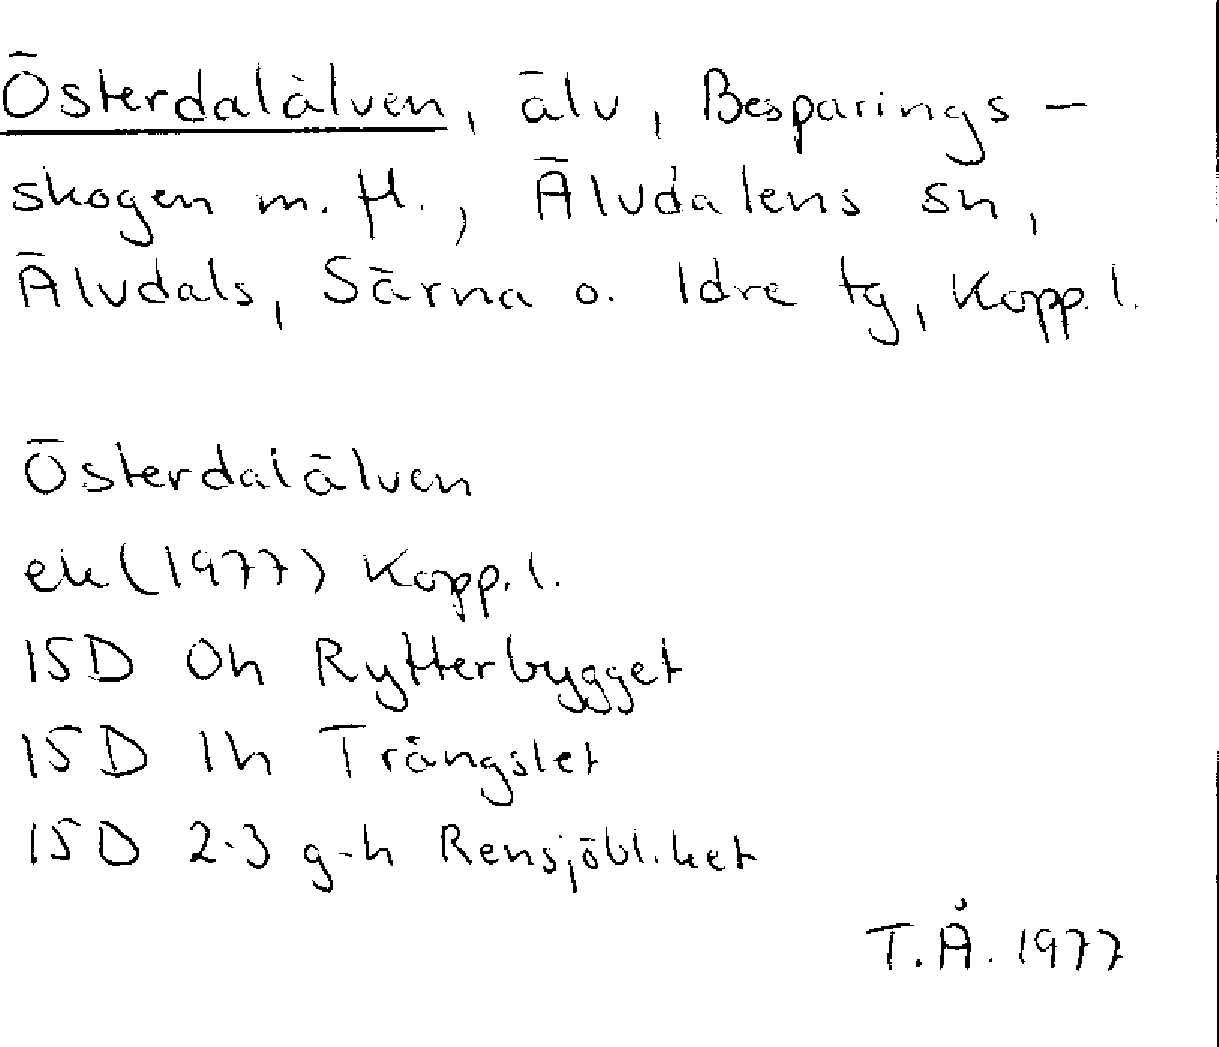 Österdalälven, älv, Besparings-
skogen m. fl., Älvdalens sn,
Älvdals, Särna o. Idre tg, Kopp. l.
Österdalälven
ek (1977) Kopp. l.
15D 0h Rytterbygget
15D 1h Trängslet
15D 2-3 g-h Rensjöblicket
T.Å. 1977